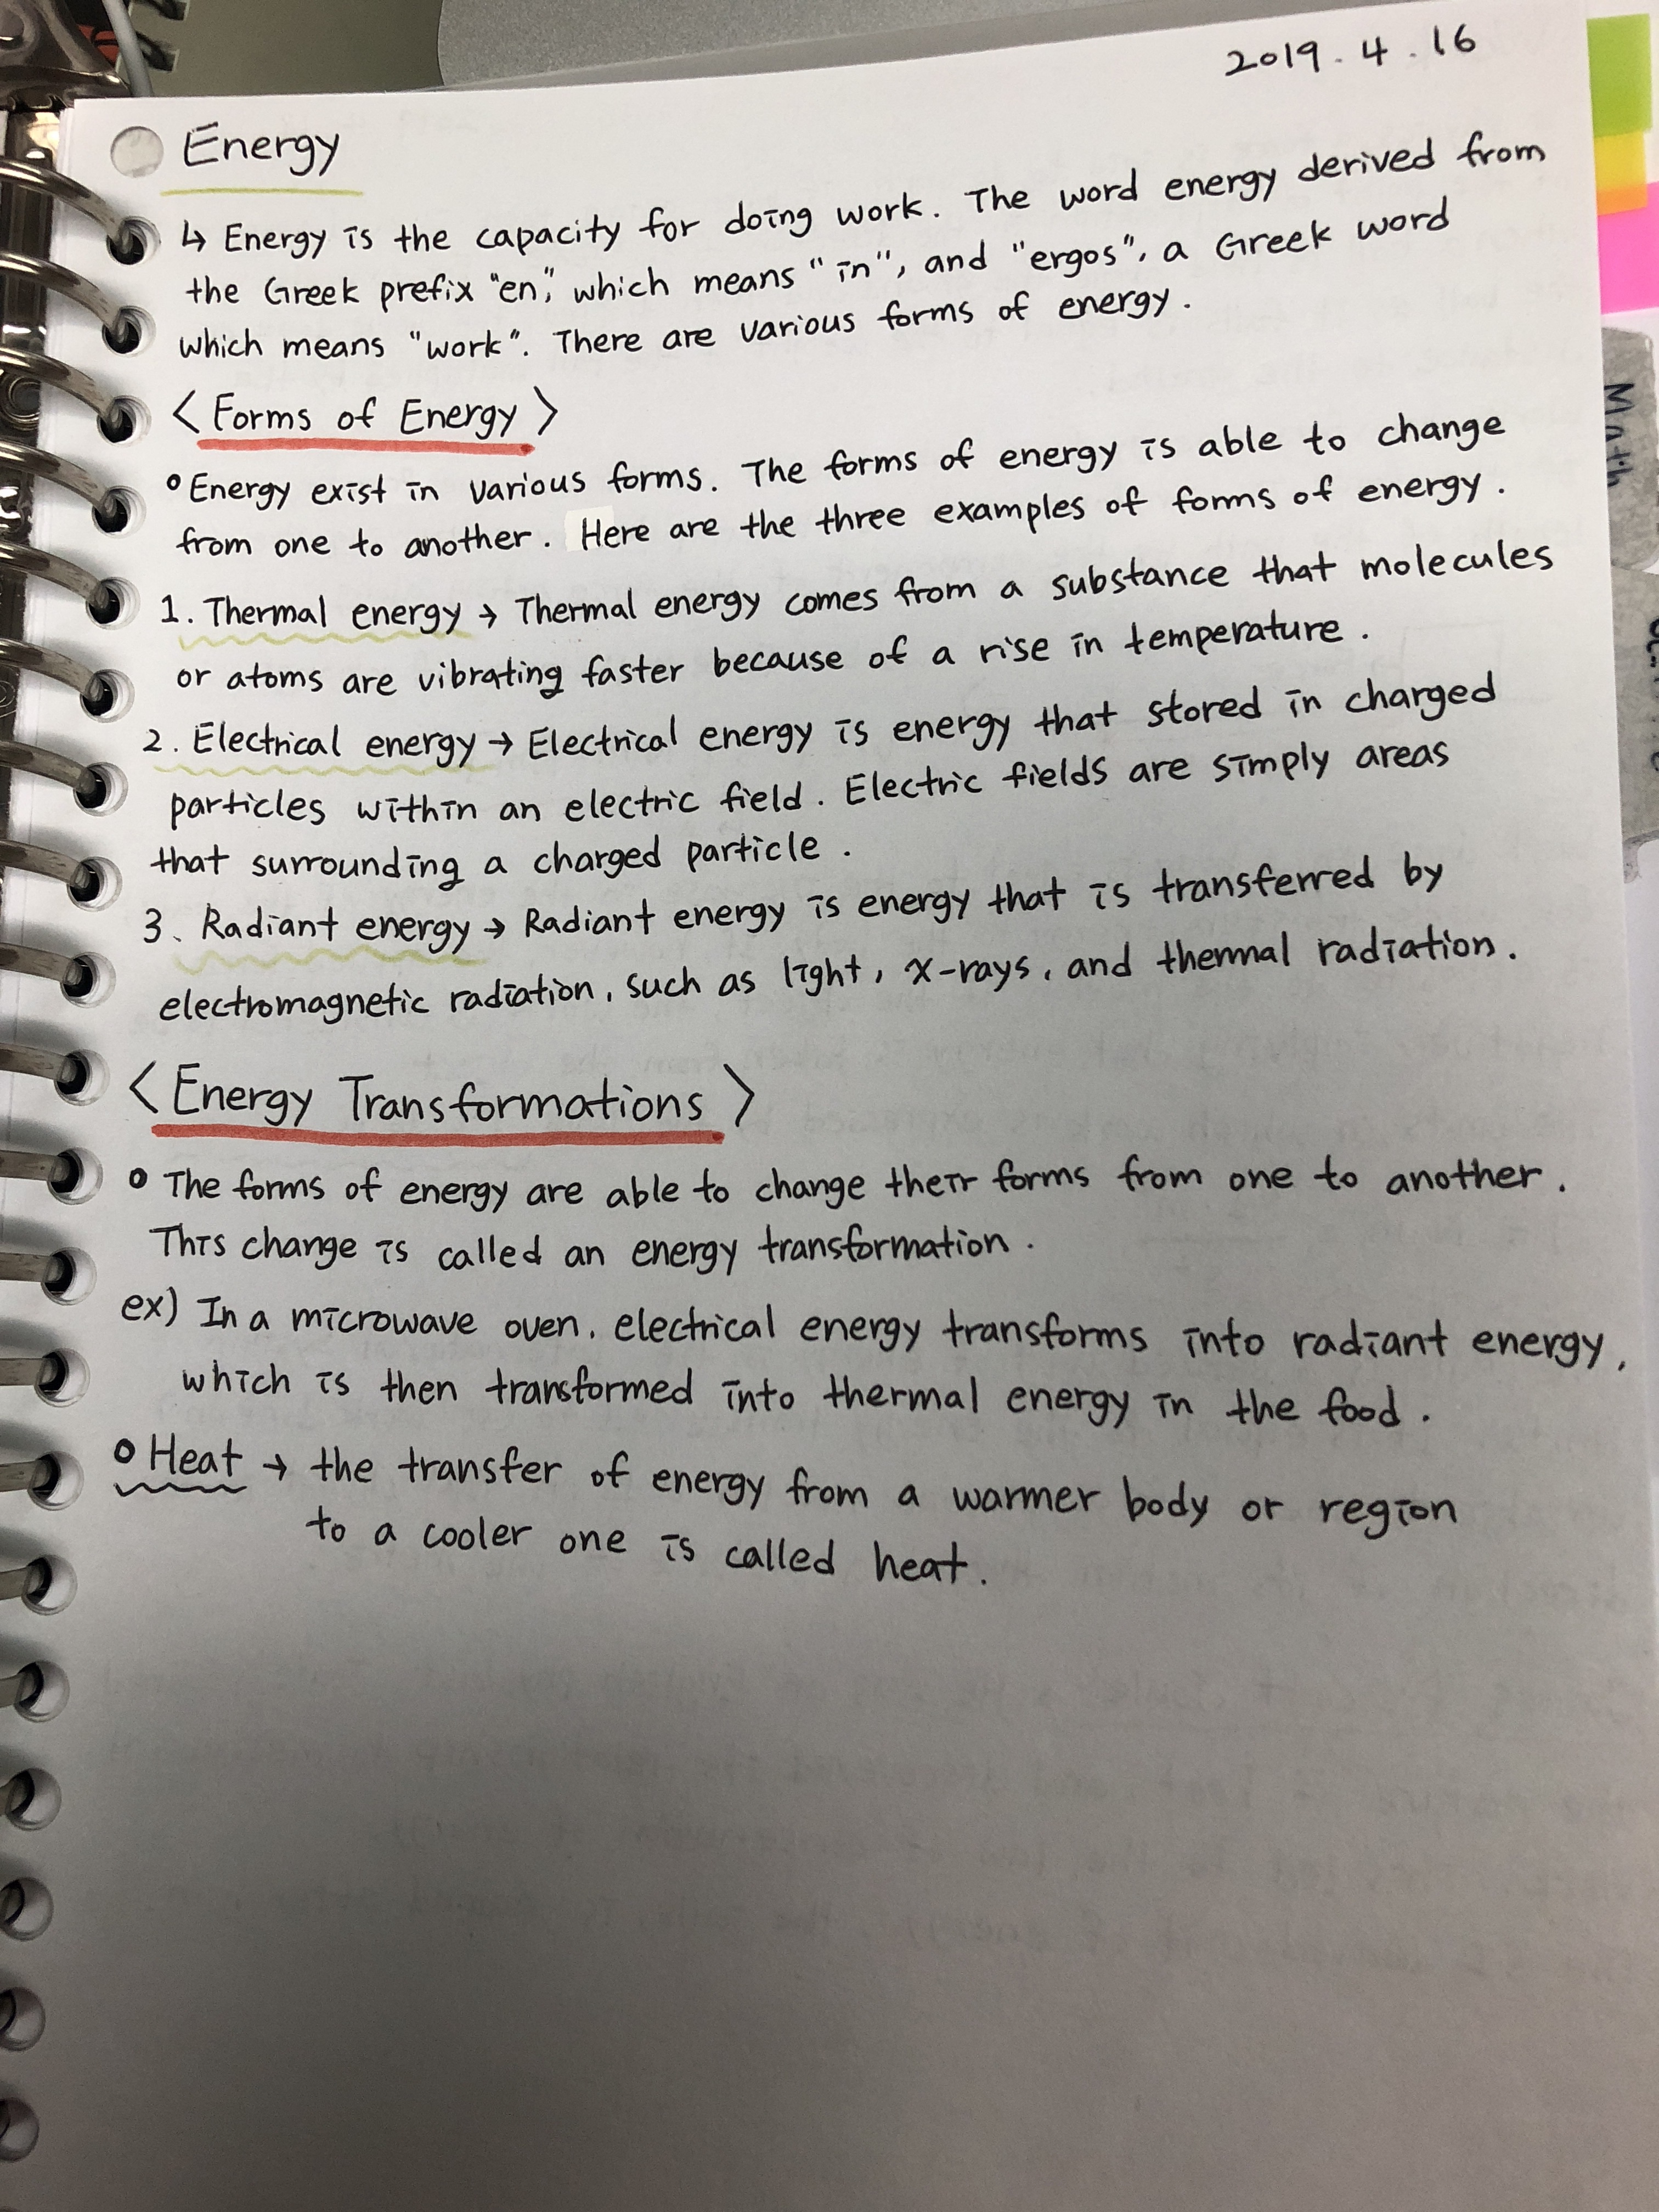 2019. 4. 16
Energy
↳ Energy is the capacity for doing work. The word energy derived from
the Greek prefix "en," which means "in", and "ergos", a Greek word
which means "work". There are various forms of energy.
< Forms of Energy >
° Energy exist in various forms. The forms of energy is able to change
from one to another. Here are the three examples of forms of energy.
1. Thermal energy → Thermal energy comes from a substance that molecules
or atoms are vibrating faster because of a rise in temperature.
2. Electrical energy → Electrical energy is energy that stored in charged
particles within an electric field. Electric fields are simply areas
that surrounding a charged particle.
3. Radiant energy → Radiant energy is energy that is transferred by
electromagnetic radiation, such as light, x-rays, and thermal radiation.
< Energy Transformations >
° The forms of energy are able to change their forms from one to another.
This change is called an energy transformation.
ex) In a microwave oven, electrical energy transforms into radiant energy,
which is then transformed into thermal energy in the food.
° Heat → the transfer of energy from a warmer body or region
to a cooler one is called heat.
Math